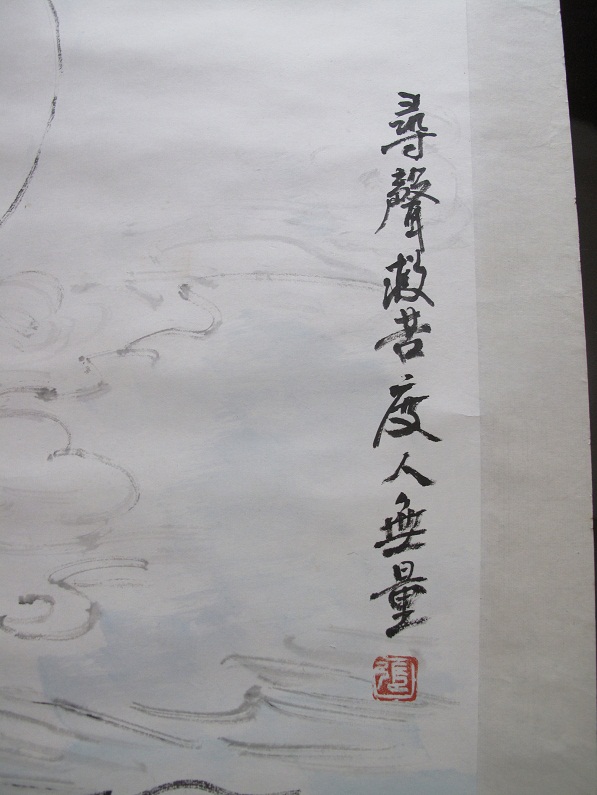 尋聲救苦度人無量
張